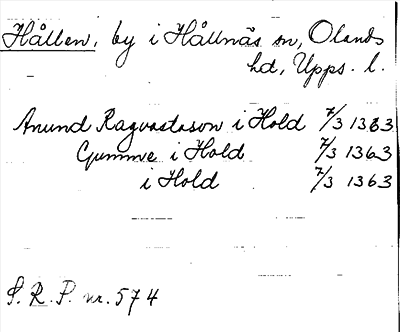 Hållen, by i Hållnäs sn, Olands
hd, Upps. l.
Anund Ragvastason i Hold 7/3 1363
Gumme i Hold 7/3 1363
i Hold 7/3 1363
S. R. P. nr. 574